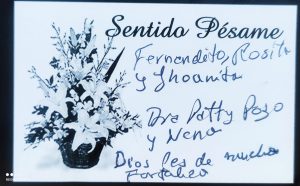 Sentido Pésame
Fernandito, Rosita
y Jhoanita
Dra Patty Pozo
y Nena
Dios les de mucha
Fortaleza